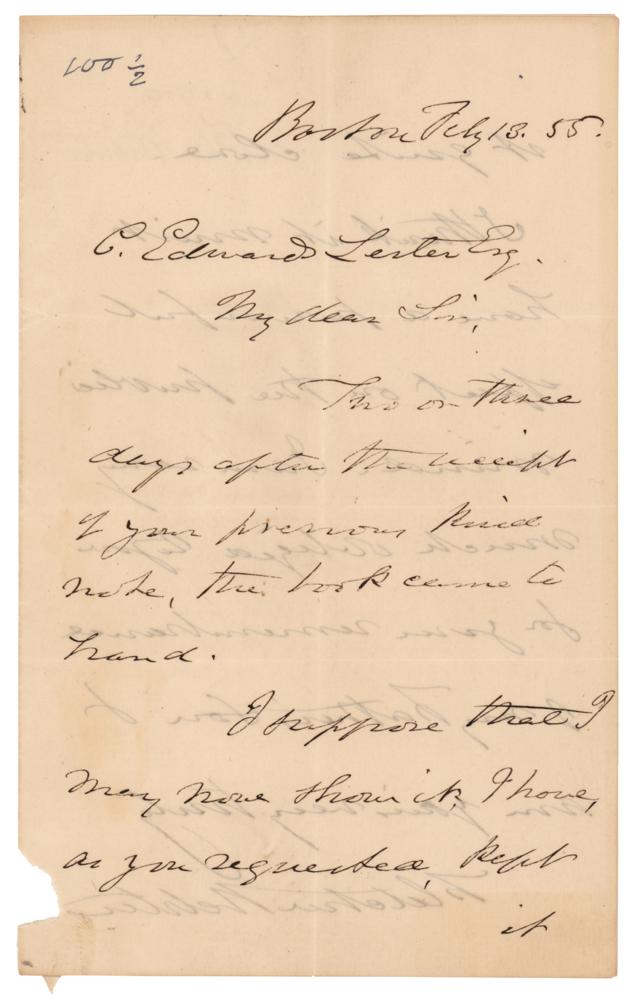 100 1/2
Boston Feby 13. 55.
C. Edwards Lester Esq.
My dear Sir,
Two or three
days after the receipt
of your previous kind
note, the book came to
hand.
I suppose that I
may now show it, I have,
as you requested, kept
it